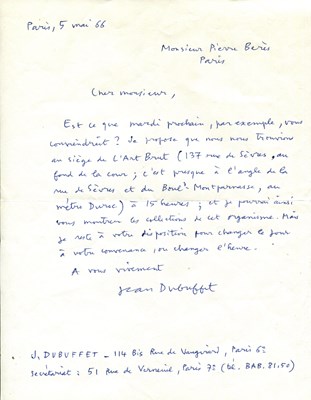 Paris, 5 mai 66
Monsieur Pierre Berès
Paris
Cher monsieur,
Est ce que mardi prochain, par exemple, vous
conviendrait ? Je propose que nous nous trouvions
au siège de L'Art Brut (137 rue de Sèvres, au
fond de la cour ; c'est presque à l'angle de la
rue de Sèvres et du Boulᵈ Montparnasse, au
métro Duroc) à 15 heures ; et je pourrai ainsi
vous montrer les collections de cet organisme. Mais
je reste à votre disposition pour changer le jour
à votre convenance, ou changer l'heure.
A vous vivement
Jean Dubuffet
J. DUBUFFET - 114 Bis Rue de Vaugirard, Paris 6e
secrétariat : 51 Rue de Verneuil, Paris 7e (tél. BAB. 81.50)